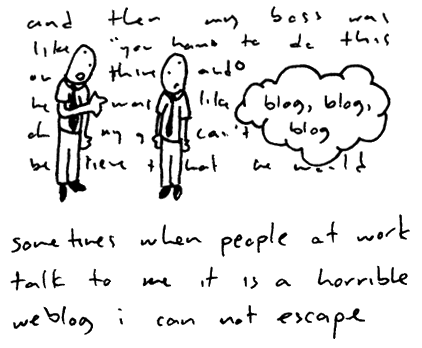 and then my boss was
like "you have to do this
or thing and
he was like
oh my g can't
be lieve t hat he would
blog, blog,
blog
sometimes when people at work
talk to me it is a horrible
weblog i can not escape